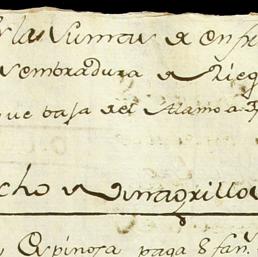 y las sumas de enfre
sembradura de Rieg
que baja del Alamo a
cho de Vinagrillo
Espinosa paga 8 fan.s